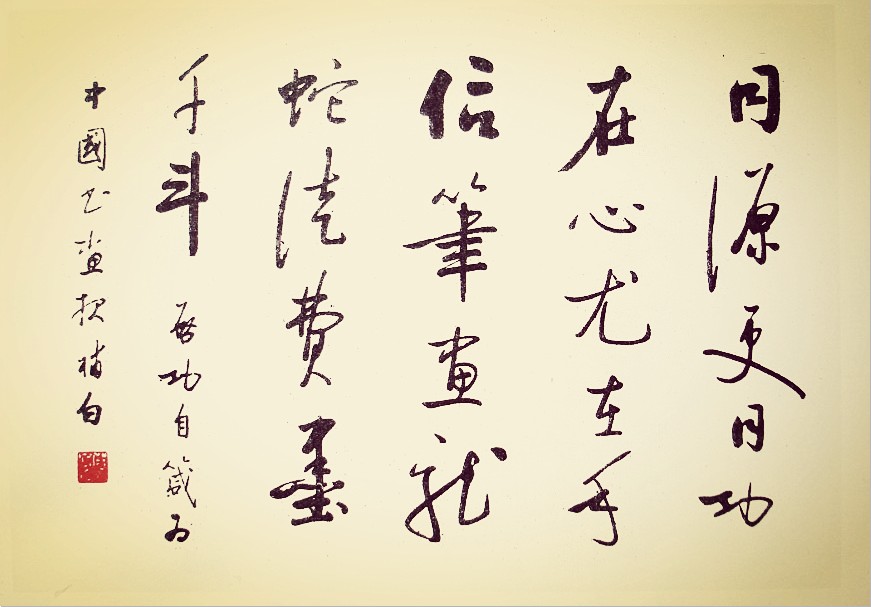 同源更同功
在心尤在手
信筆畫龍
蛇徒費墨
千斗 啟功自箴為
中國书畫报補白